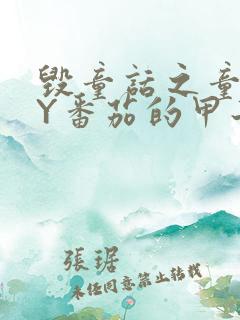 毀童話之童
Y番茄的甲
張琚
未任同意禁止转载